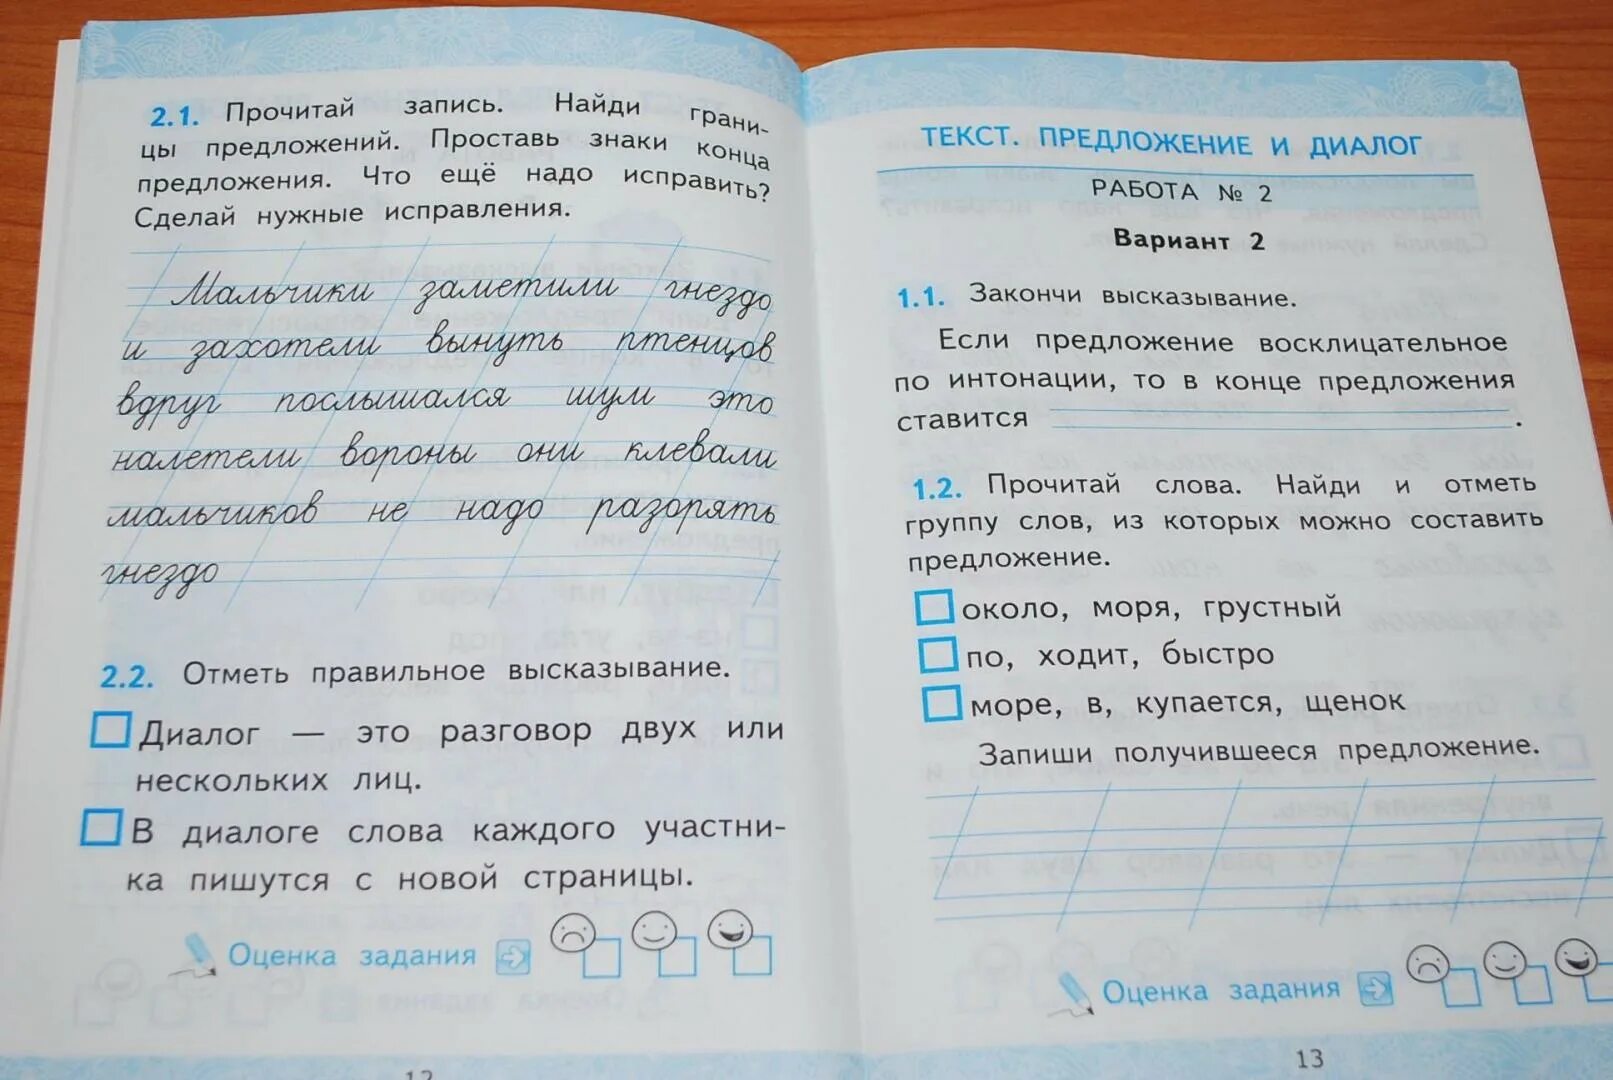 2.1. Прочитай запись. Найди грани-
цы предложений. Проставь знаки конца
предложения. Что ещё надо исправить?
Сделай нужные исправления.
Мальчики заметили гнездо
и захотели вынуть птенцов
вдруг послышался шум это
налетели вороны они клевали
мальчиков не надо разорять
гнездо
2.2. Отметь правильное высказывание.
Диалог — это разговор двух или
нескольких лиц.
В диалоге слова каждого участни-
ка пишутся с новой страницы.
Оценка задания
12
ТЕКСТ. ПРЕДЛОЖЕНИЕ И ДИАЛОГ
РАБОТА № 2
Вариант 2
1.1. Закончи высказывание.
Если предложение восклицательное
по интонации, то в конце предложения
ставится .
1.2. Прочитай слова. Найди и отметь
группу слов, из которых можно составить
предложение.
около, моря, грустный
по, ходит, быстро
море, в, купается, щенок
Запиши получившееся предложение.
Оценка задания
13